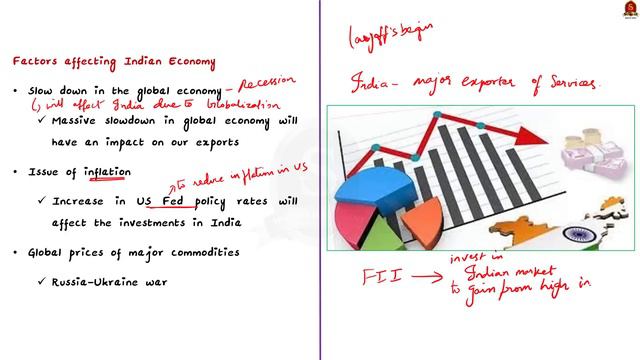 Factors affecting Indian Economy
• Slow down in the global economy – Recession
↳ will affect India due to Globalization
✓ Massive slowdown in global economy will
have an impact on our exports
• Issue of inflation
→ to reduce inflation in US
✓ Increase in US Fed policy rates will
affect the investments in India
• Global prices of major commodities
✓ Russia-Ukraine war
Layoff's begin
India – major exporter of Services.
FII → invest in
Indian market
to gain from high in